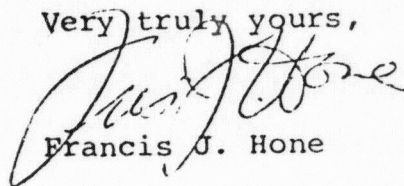 Very truly yours,
Francis J. Hone
Francis J. Hone